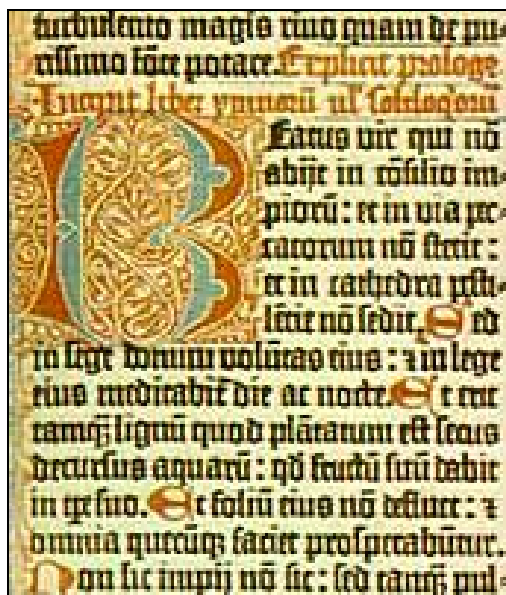 turbulento magis riuo quam de pu-
rissimo fōte potare. Explicit prologꝰ
Incipit liber ymnorū ul' soliloquiorū
Beatus vir qui nō
abijt in cōsilio im-
piorū: et in via pec-
catorum nō stetit:
et in cathedra pesti-
lētie nō sedit. Sed
in lege domini volūtas eius: ⁊ in lege
eius meditabit̄ die ac nocte. Et erit
tamqꝫ lignū quod plātatum est secus
decursus aquarū: qd̄ fructū suū dabit
in tp̄e suo. Et foliū eius nō defluet: ⁊
omnia quecūqꝫ faciet prosperabūtur.
Non sic impij nō sic: sed tamqꝫ pul-